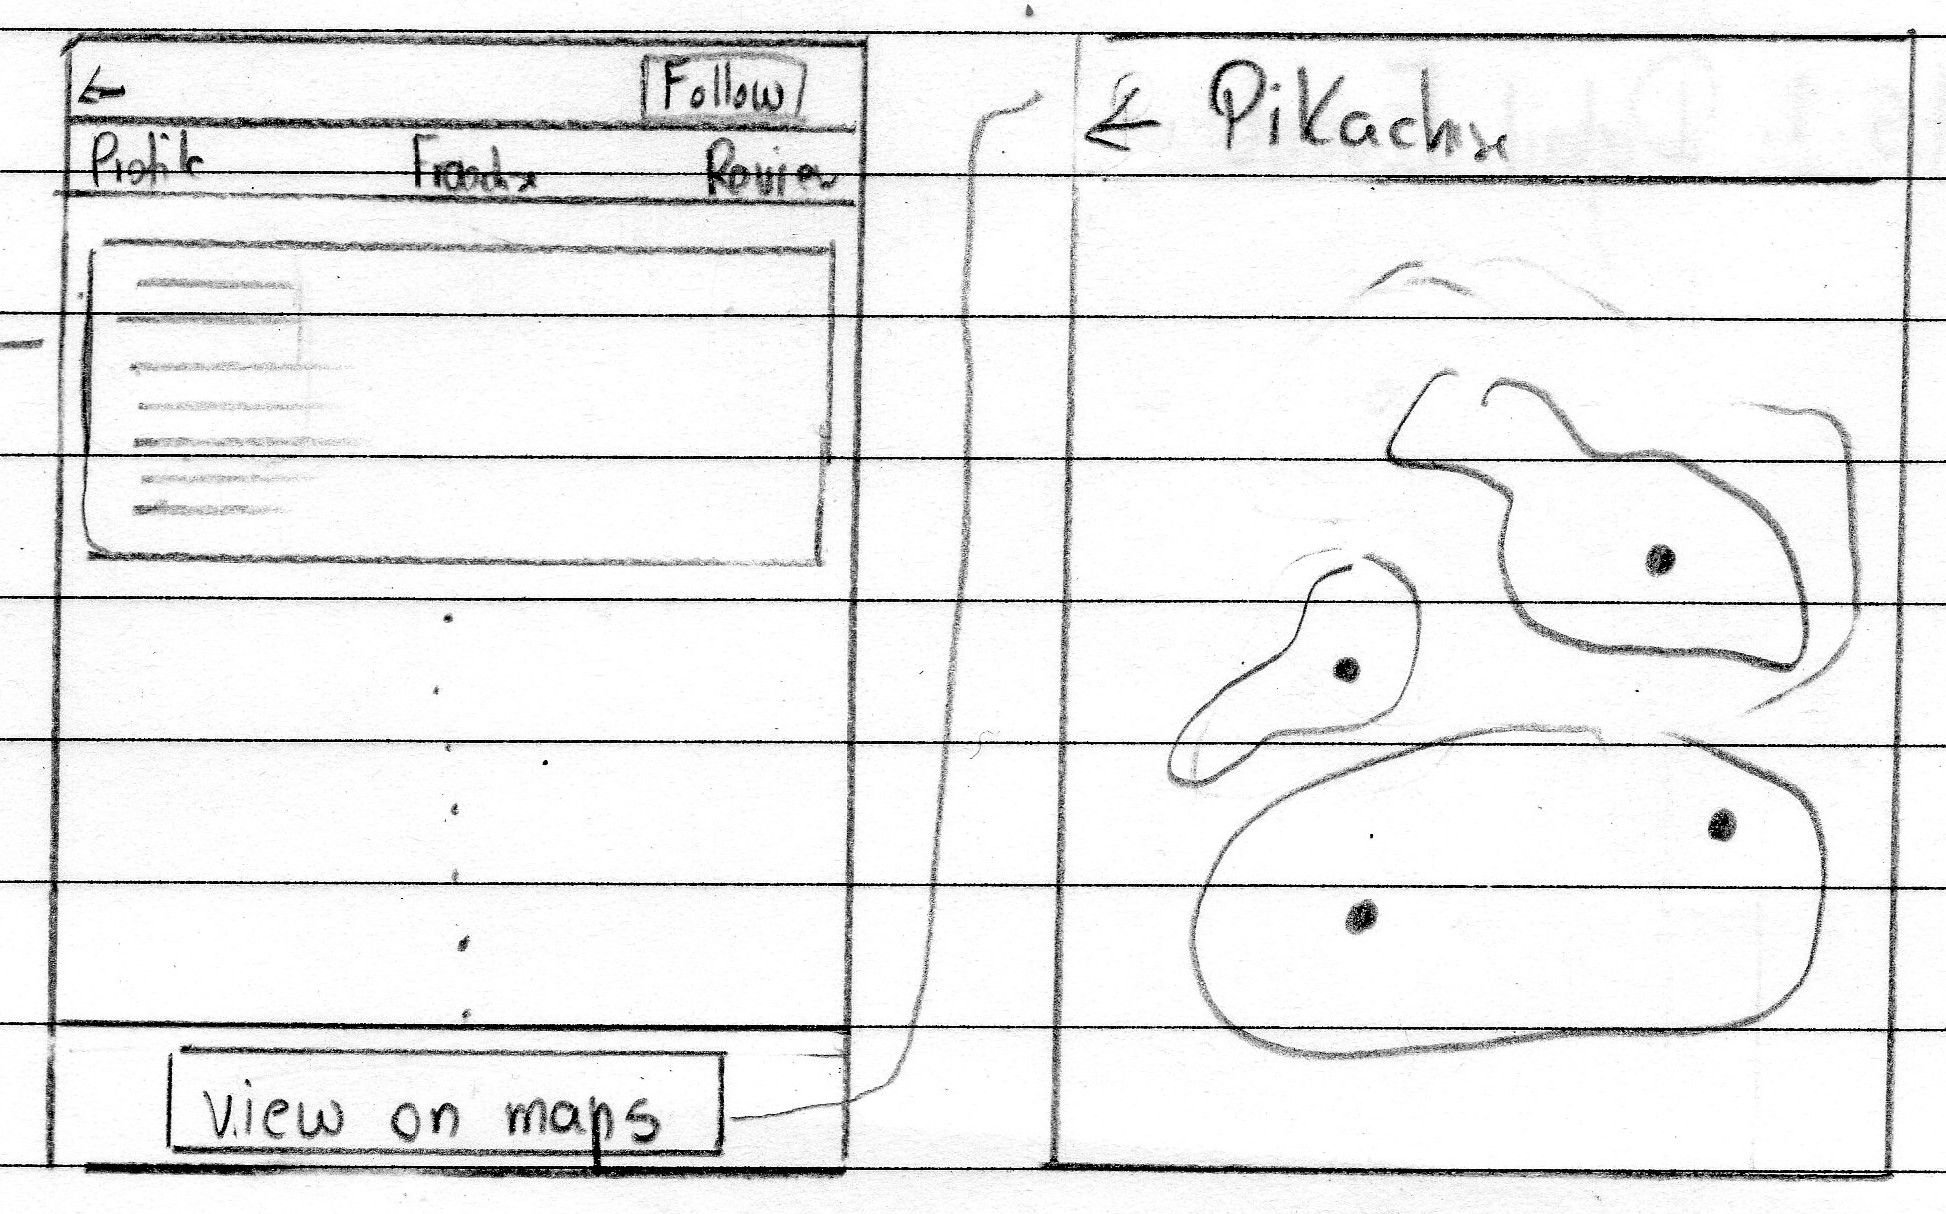 ← Follow
Profile Review
View on maps
← Pikachu